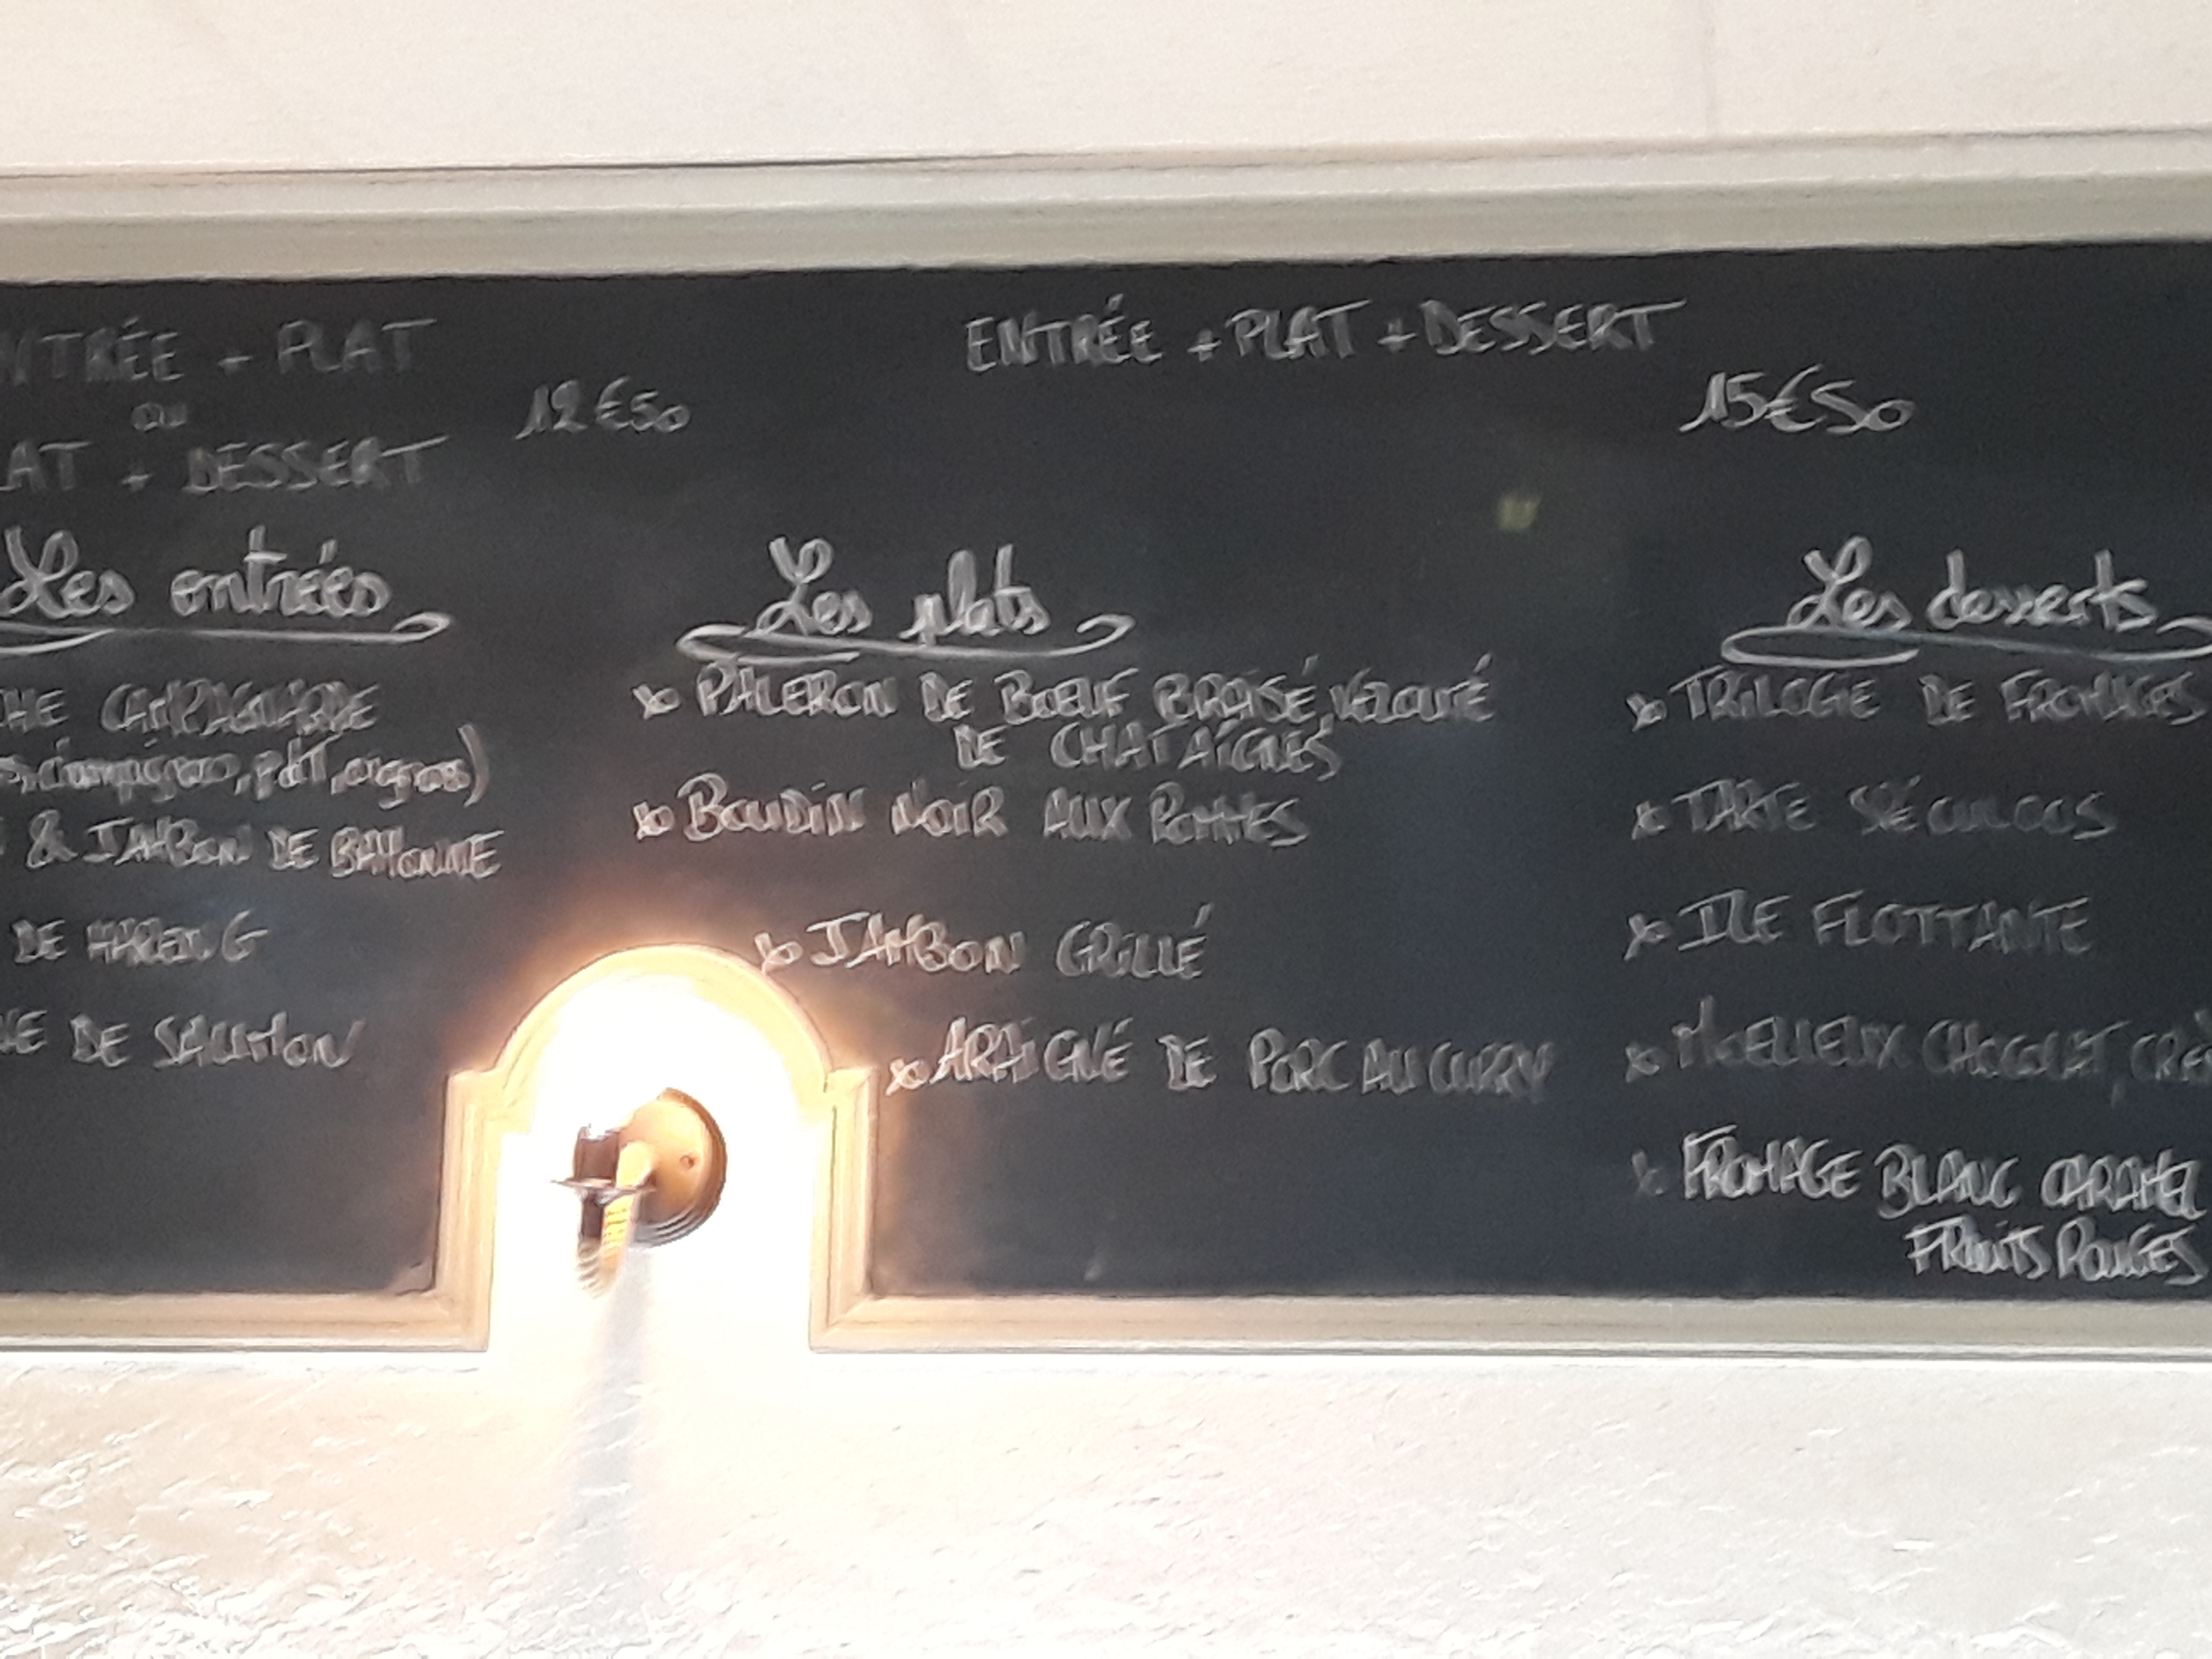 NTRÉE + PLAT
ou
LAT + DESSERT
12€50
ENTRÉE + PLAT + DESSERT
15€50
Les entrées
HE CAMPAGNARDE
s, champignons, pdt, oignons)
& JAMBON DE BAYONNE
DE HARENG
NE DE SAUMON
Les plats
x PALERON DE BOEUF BRAISÉ, VELOUTÉ
DE CHATAÎGNES
x BOUDIN NOIR AUX POMMES
x JAMBON GRILLÉ
x ARAIGNÉ DE PORC AU CURRY
Les desserts
x TRILOGIE DE FROMAGES
x TARTE SPÉCULOOS
x ILE FLOTTANTE
x MOELLEUX CHOCOLAT, CRÈ
x FROMAGE BLANC CARAMEL
FRUITS ROUGES